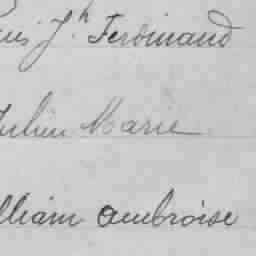 Jh Ferdinand
Julien Marie
lliam Ambroise